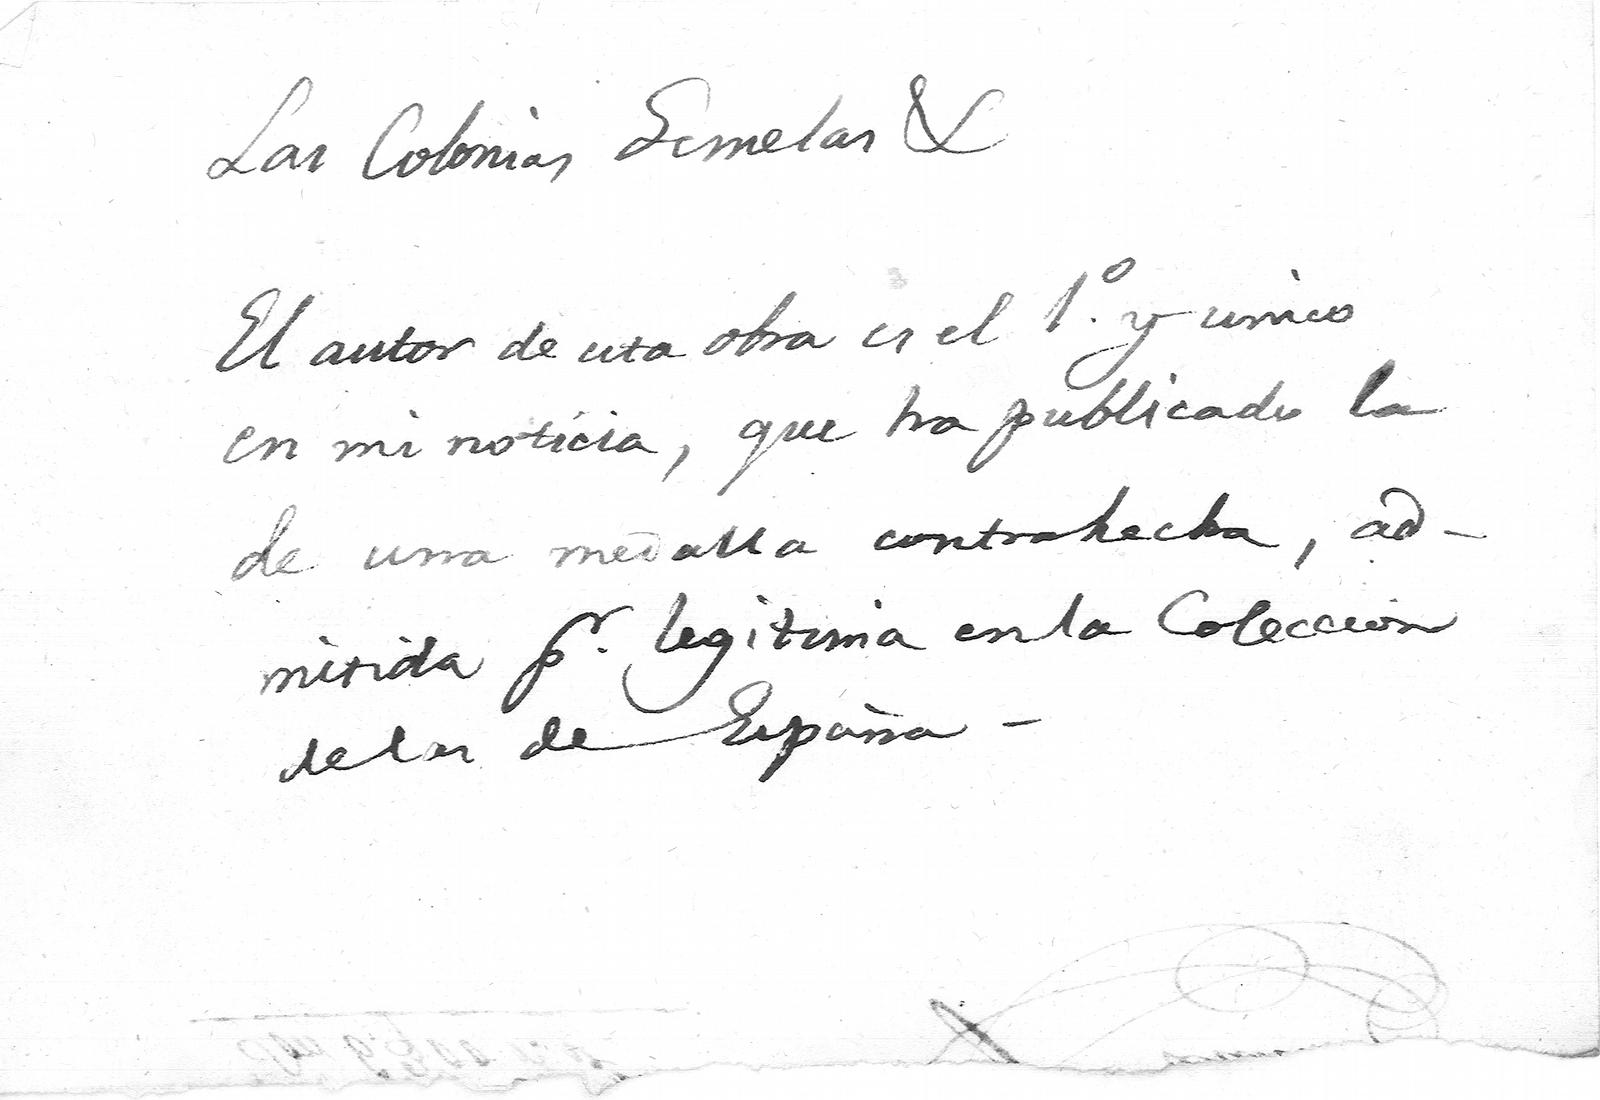 Las Colonias Gemelas &
El autor de esta obra es el 1.º y unico
en mi noticia, que ha publicado la
de una medalla contrahecha, ad-
mitida p.r legitima en la Coleccion
de las de España -